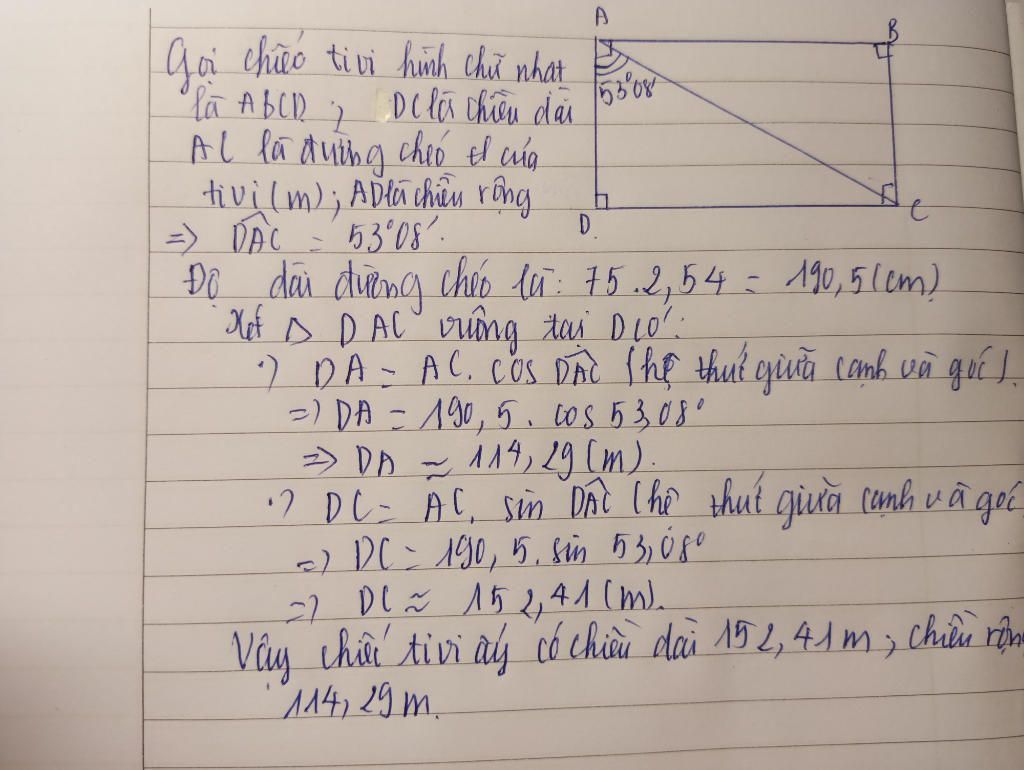 A
B
Gọi chiếc tivi hình chữ nhật
53°08'
là ABCD; DC là chiều dài
AC là đường chéo của
tivi (m); AD là chiều rộng
D
C
=> DAC = 53°08'.
Độ dài đường chéo là: 75.2,54 = 190,5(cm)
Xét △ DAC vuông tại D có:
·) DA = AC. cos DAC (hệ thức giữa cạnh và góc).
=) DA = 190,5. cos 53,08°
=> DA ≈ 114,29(m).
·) DC = AC. sin DAC (hệ thức giữa cạnh và góc
=) DC = 190,5. sin 53,08°
=) DC ≈ 152,41(m).
Vậy chiếc tivi ấy có chiều dài 152,41m; chiều rộng
114,29m.